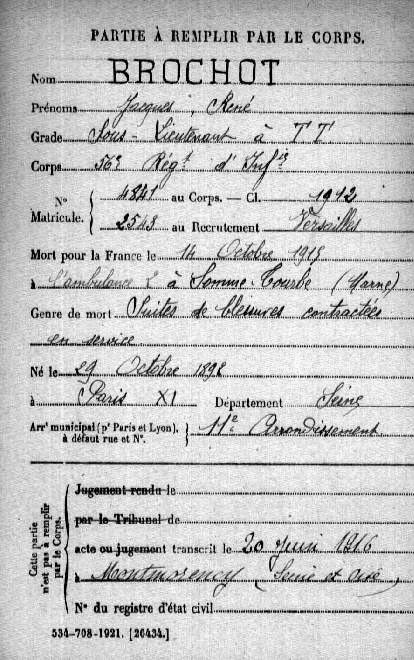 PARTIE À REMPLIR PAR LE CORPS.
Nom BROCHOT
Prénoms Jacques, René
Grade Sous-Lieutenant à T T
Corps 56e Régt d'Infie
Nº Matricule. { 4841 au Corps. — Cl. 1912
2543 au Recrutement Versailles
Mort pour la France le 14 Octobre 1915
à l'ambulance 2 à Somme-Tourbe (Marne)
Genre de mort Suites de blessures contractées
en service
Né le 29 Octobre 1892
à Paris XI Département Seine
Arrt municipal (pr Paris et Lyon), à défaut rue et Nº. } 11e Arrondissement
Cette partie n'est pas à remplir par le Corps.
Jugement rendu le
par le Tribunal de
acte ou jugement transcrit le 20 Juin 1916
à Montmorency (Seine et Oise)
Nº du registre d'état civil
534-708-1921. [26434.]